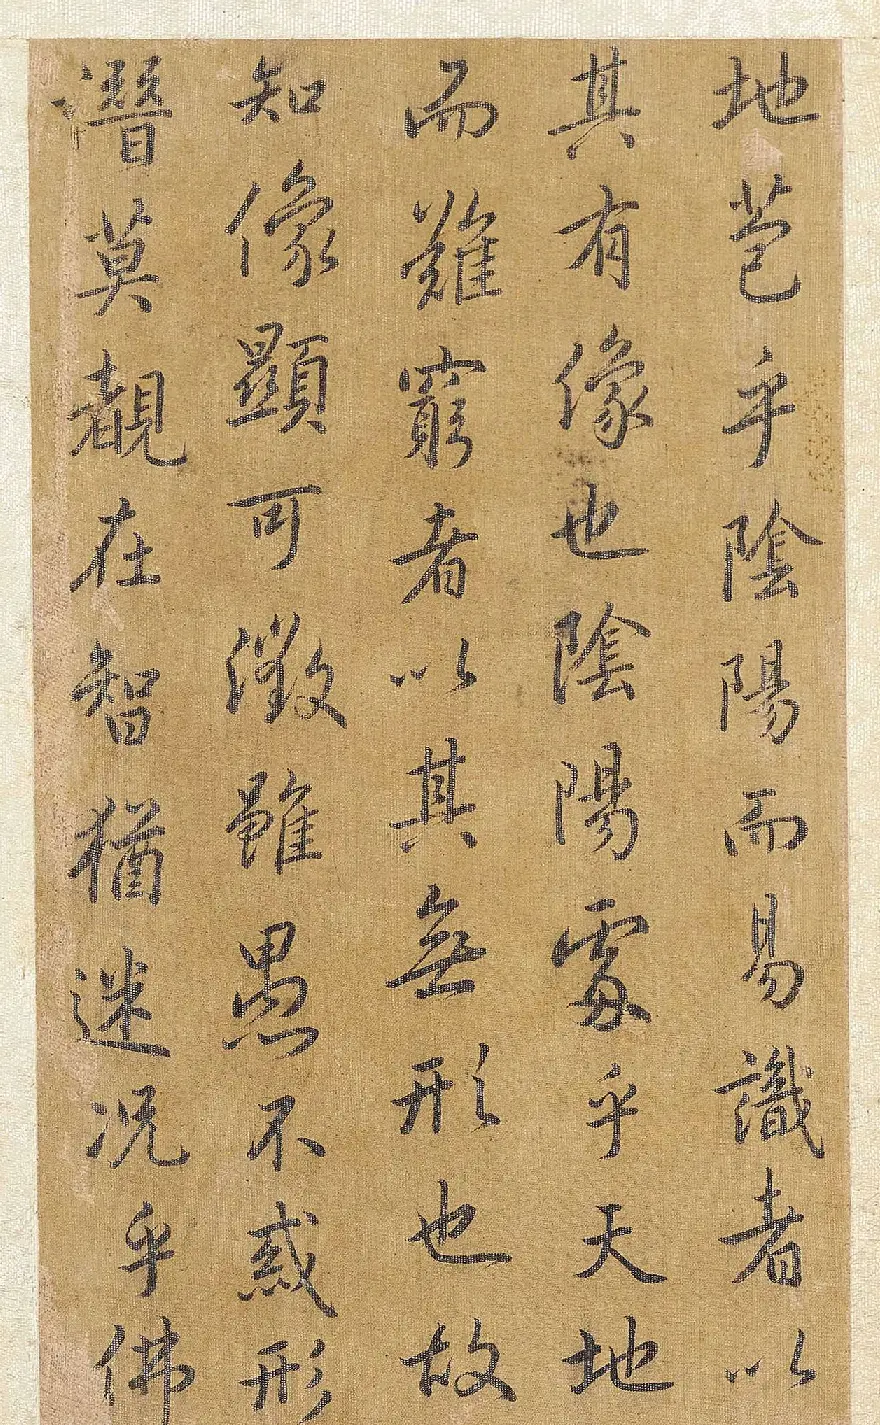 地苞乎陰陽而易識者以
其有像也陰陽處乎天地
而難窮者以其無形也故
知像顯可徵雖愚不惑形
潛莫覩在智猶迷况乎佛